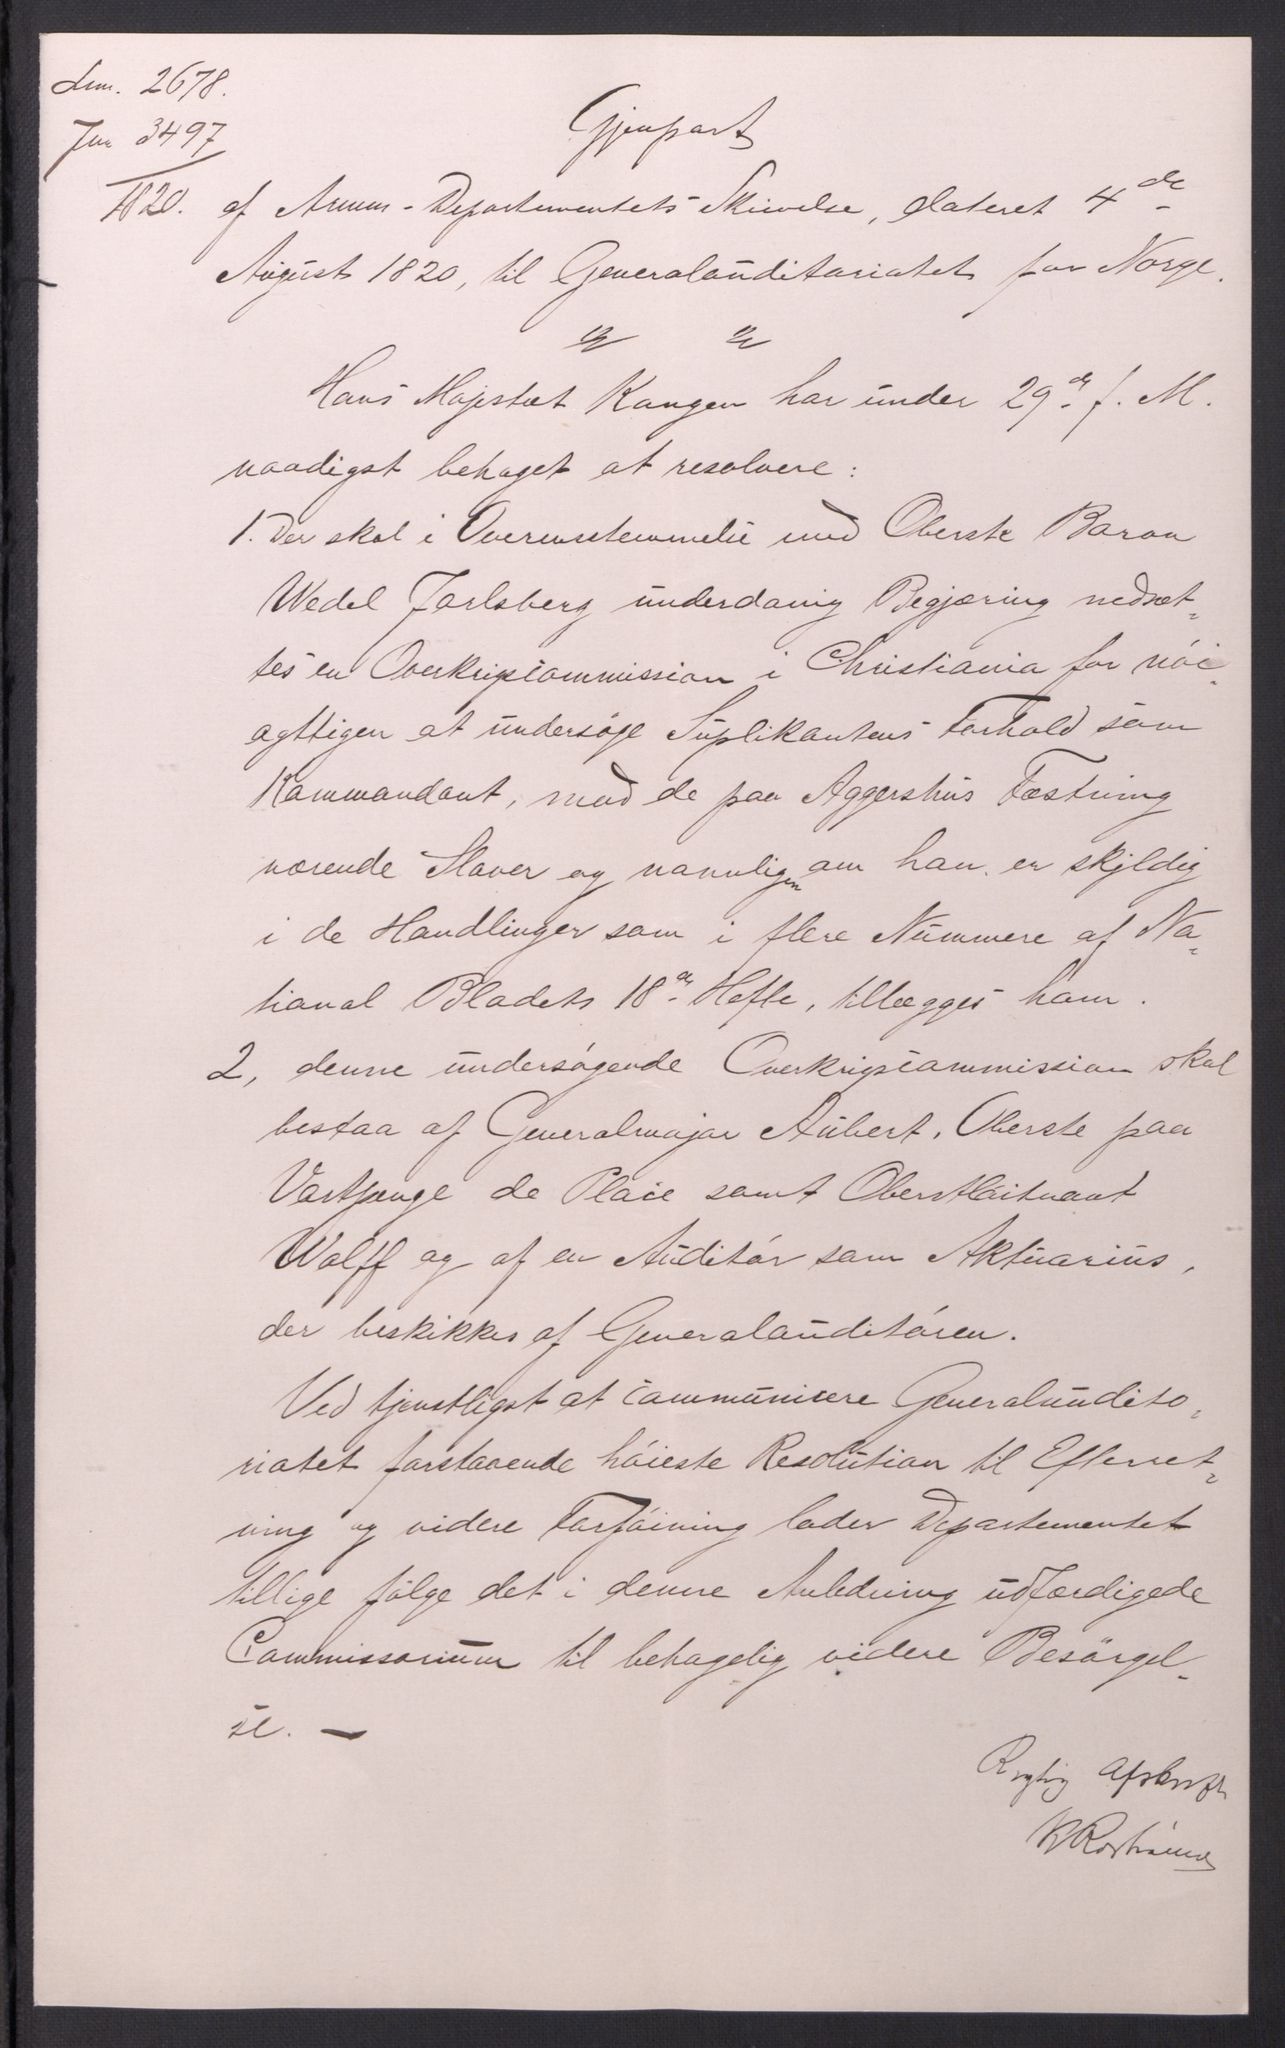 Lnr. 2678.
Jnr 3497
1820.
Gjenpart
af Armee-Departementets Skrivelse, dateret 4de
August 1820, til Generalauditoriatet for Norge.
Hans Majestæt Kongen har under 29de f. M.
naadigst behaget at resolvere:
1. Der skal i Overensstemmelse med Oberste Baron
Wedel Jarlsberg underdanig Begjæring nedsæt-
tes en Overkrigscommission i Christiania for nöi-
agttigen at undersöge Suplikantens Forhold som
Kommandant, mod de paa Aggershus Fæstning
værende Slaver og navnligen om han er skyldig
i de Handlinger som i flere Nummere af Na-
tional Bladets 18de Hefte, tillægges ham.
2, denne undersögende Overkrigscommission skal
bestaa af Generalmajor Aubert, Oberste paa
Vartpenge de Place samt Oberstlöitnant
Wolff og af en Auditör som Aktuarius,
der beskikkes af Generalauditören.
Ved tjenstligst at communicere Generalaudito-
riatet forstaaende höieste Resolution til Efterret-
ning og videre Forföining lader Departementet
tillige fölge det i denne Anledning udfærdigede
Commissorium til behagelig videre Besörgel-
se. —
Rigtig Afskrift